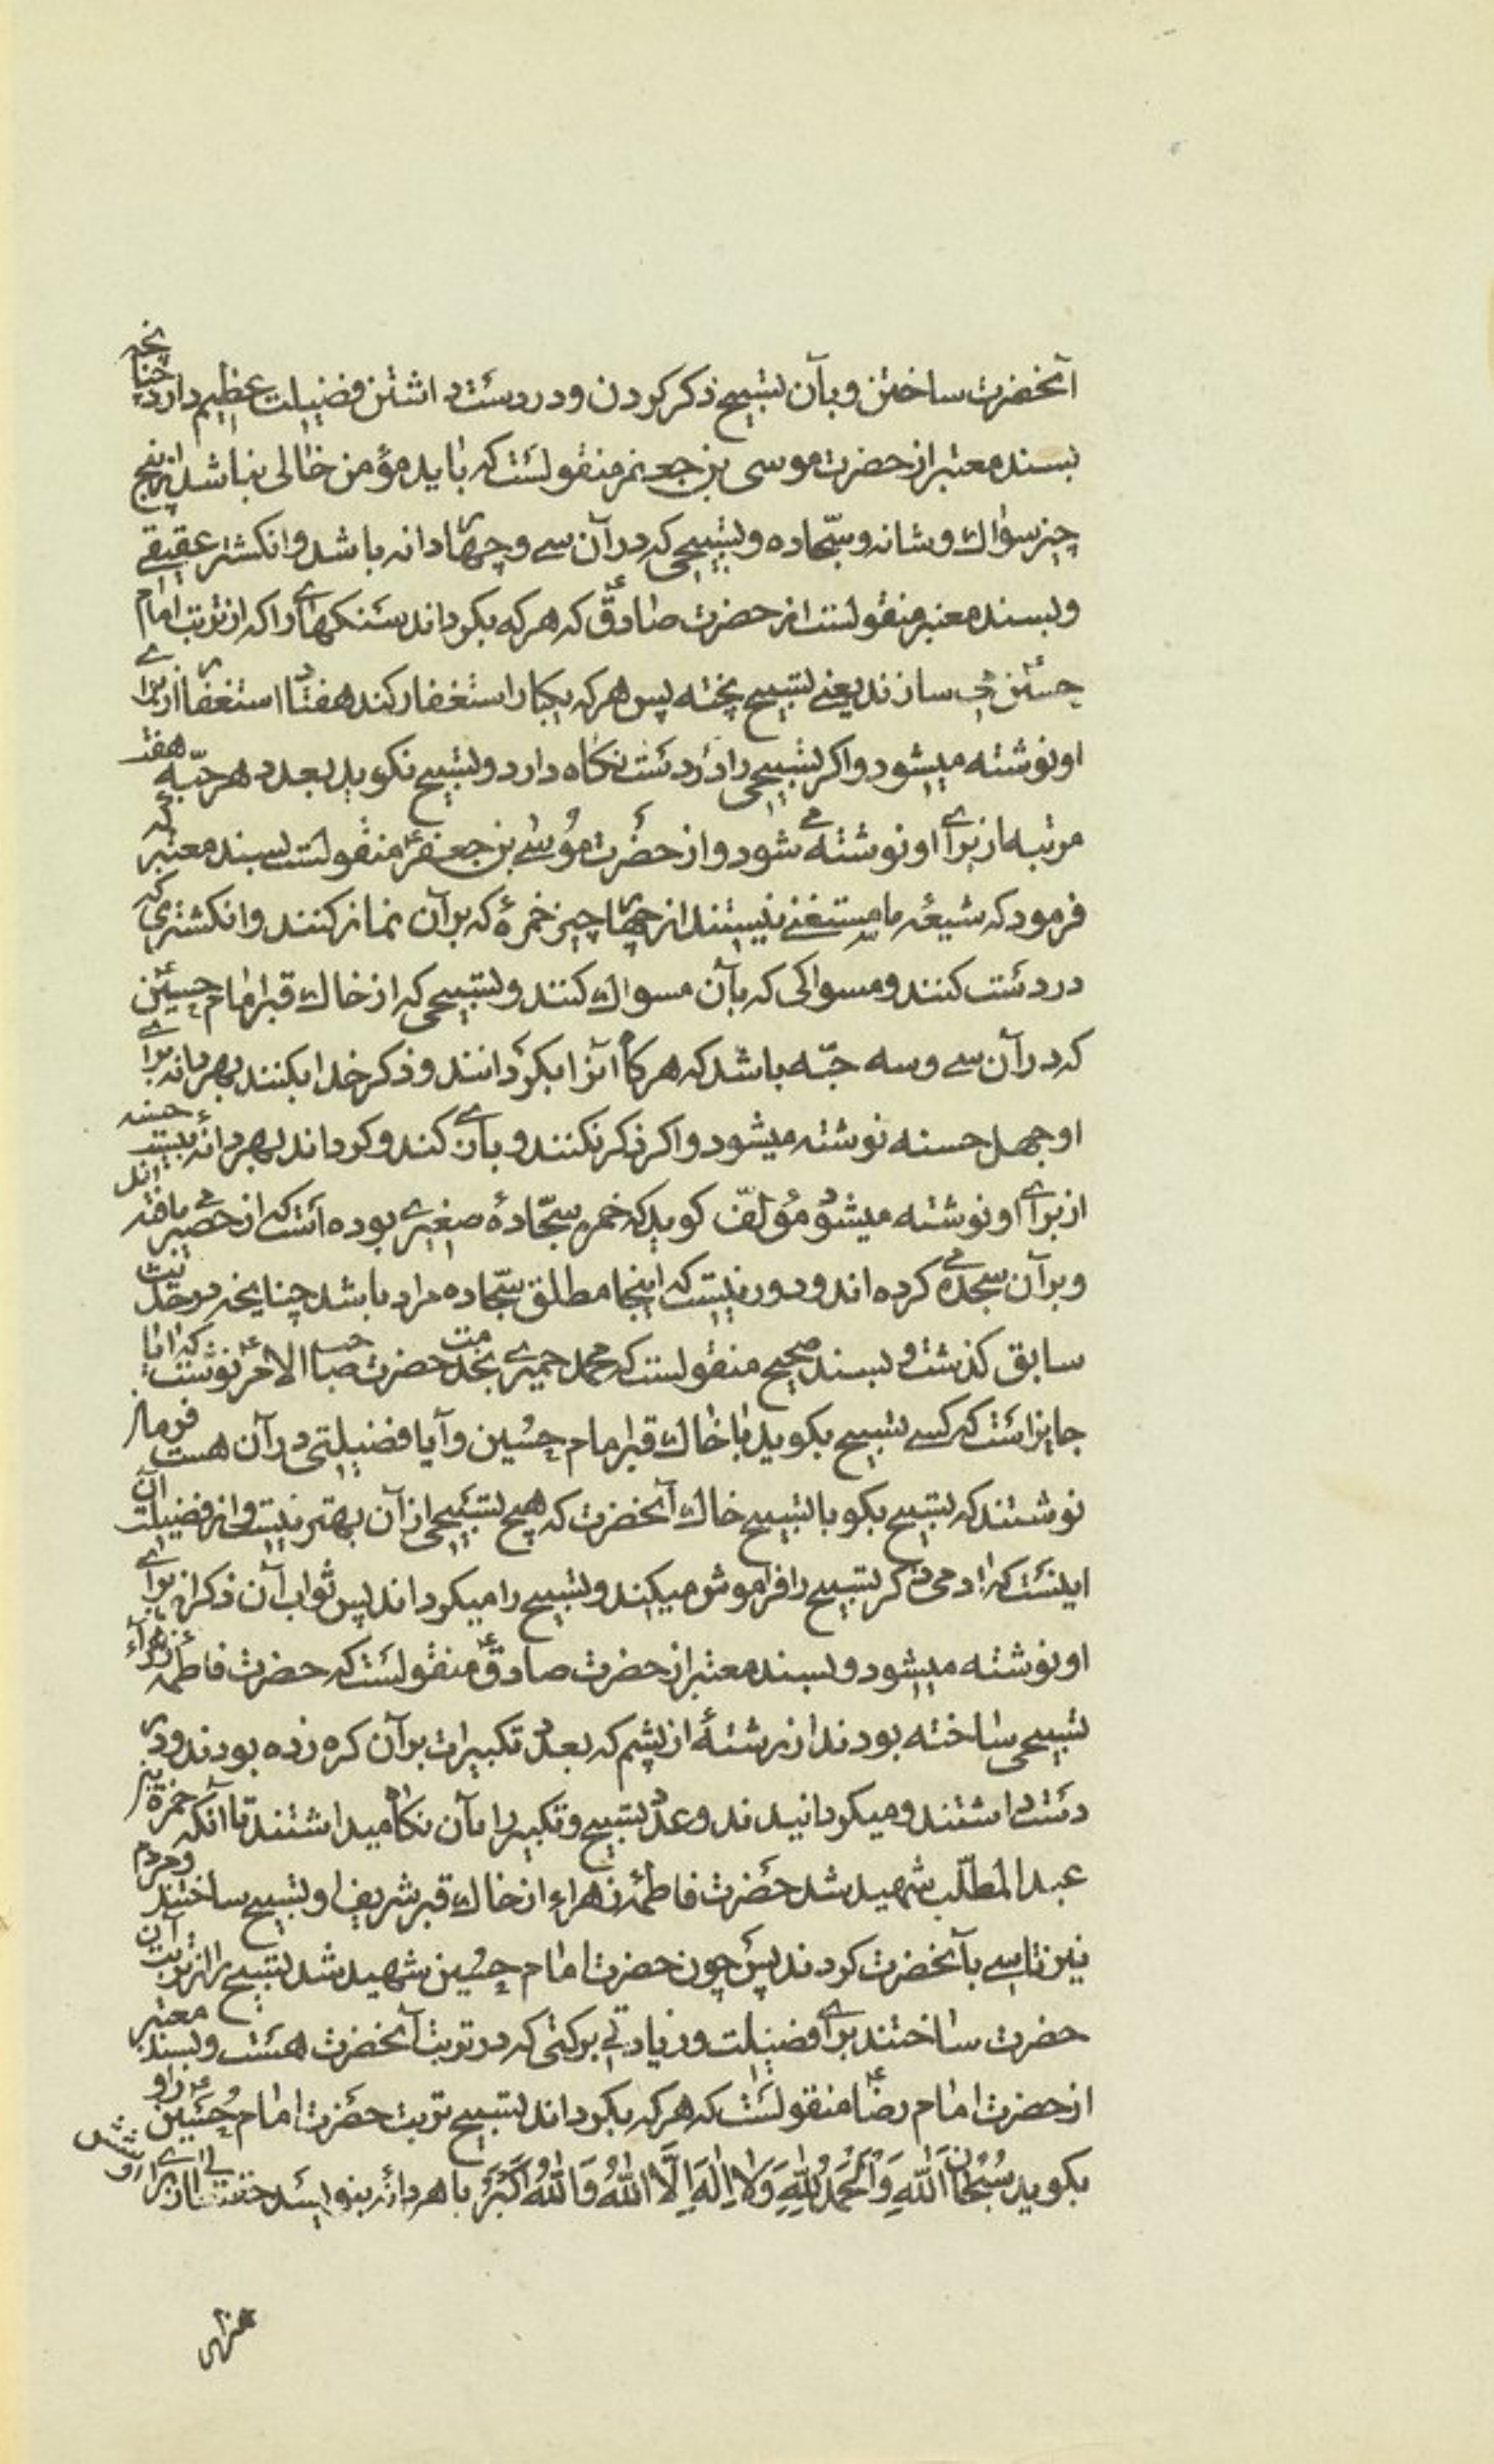 آنحضرت ساختن و بآن تسبیح ذکر کردن و در دست داشتن فضیلت عظیم دارد چنانچه
بسند معتبر از حضرت موسی بن جعفر منقولست که باید مؤمن خالی نباشد از پنج
چیز سواك و شانه و سجّاده و تسبیحی که در آن سے و چهار دانه باشد و انکشتر عقیقے
و بسند معتبر منقولست از حضرت صادقؑ که هر که بکرداند سنکهاے را که از تربت امام
حسینؑ مے سازند یعنے تسبیح پخته پس هر که یکبار استغفار کند هفتاد استغفار از براے
او نوشته میشود و اکر تسبیحی را در دست نکاه دارد و تسبیح نکوید بعدد هر حبّه هفت
مرتبه از براے او نوشته مے شود و از حضرت موسے بن جعفرؑ منقولست بسند معتبر که
فرمود که شیعۀ ما مستغنے نیستند از چهار چیز خمرۀ که بر آن نماز کنند و انکشتری که
در دست کنند و مسواکی که بآن مسواك کنند و تسبیحی که از خاك قبر امام حسینؑ
که در آن سے و سه حبّه باشد که هرکاه آنرا بکردانند و ذکر خدا بکنند بهر دانه براے
او چهل حسنه نوشته میشود و اکر ذکر نکنند و بازے کند و کرداند بهر دانۀ بیست حسنه
از براے او نوشته میشود مؤلّف کوید که خمره سجّادۀ صغیرے بوده است که از حصیر مے بافته اند
و بر آن سجده مے کرده اند و دور نیست که اینجا مطلق سجّاده مراد باشد چنانچه در حدیث
سابق کذشت و بسند صحیح منقولست که محمد حمیرے بخدمت حضرت صاحب الامرؑ نوشت که آیا
جایز است که کسے تسبیح بکوید با خاك قبر امام حسین و آیا فضیلتی در آن هست فرمان
نوشتند که تسبیح بکو با تسبیح خاك آنحضرت که هیچ تسبیحی از آن بهتر نیست و از فضیلت آن
اینست که آدمی ذکر تسبیح را فراموش میکند و تسبیح را میکرداند پس ثواب آن ذکر از براے
او نوشته میشود و بسند معتبر از حضرت صادقؑ منقولست که حضرت فاطمۀ زهراء
تسبیحی ساخته بودند از رشتۀ از پشم که بعدد تکبیرات بر آن کره زده بودند و در
دست داشتند و میکردانیدند و عدد تسبیح و تکبیر را بآن نکاه میداشتند تا آنکه حمزة بن
عبدالمطلّب شهید شد حضرت فاطمۀ زهراء از خاك قبر شریف او تسبیح ساختند و مردم
نیز تاسے بآنحضرت کردند پس چون حضرت امام حسین شهید شد تسبیح را از تربت آن
حضرت ساختند براے فضیلت و زیادتے برکتی که در تربت آنحضرت هست و بسند معتبر
از حضرت امام رضاؑ منقولست که هر که بکرداند تسبیح تربت حضرت امام حُسَینؑ را و
بکوید سُبْحَانَ اللّٰهِ وَ الْحَمْدُ لِلّٰهِ وَ لَا اِلٰهَ اِلَّا اللّٰهُ وَ اللّٰهُ اَکْبَرُ با هر دانه بنویسد حقتعالی از براے او شش